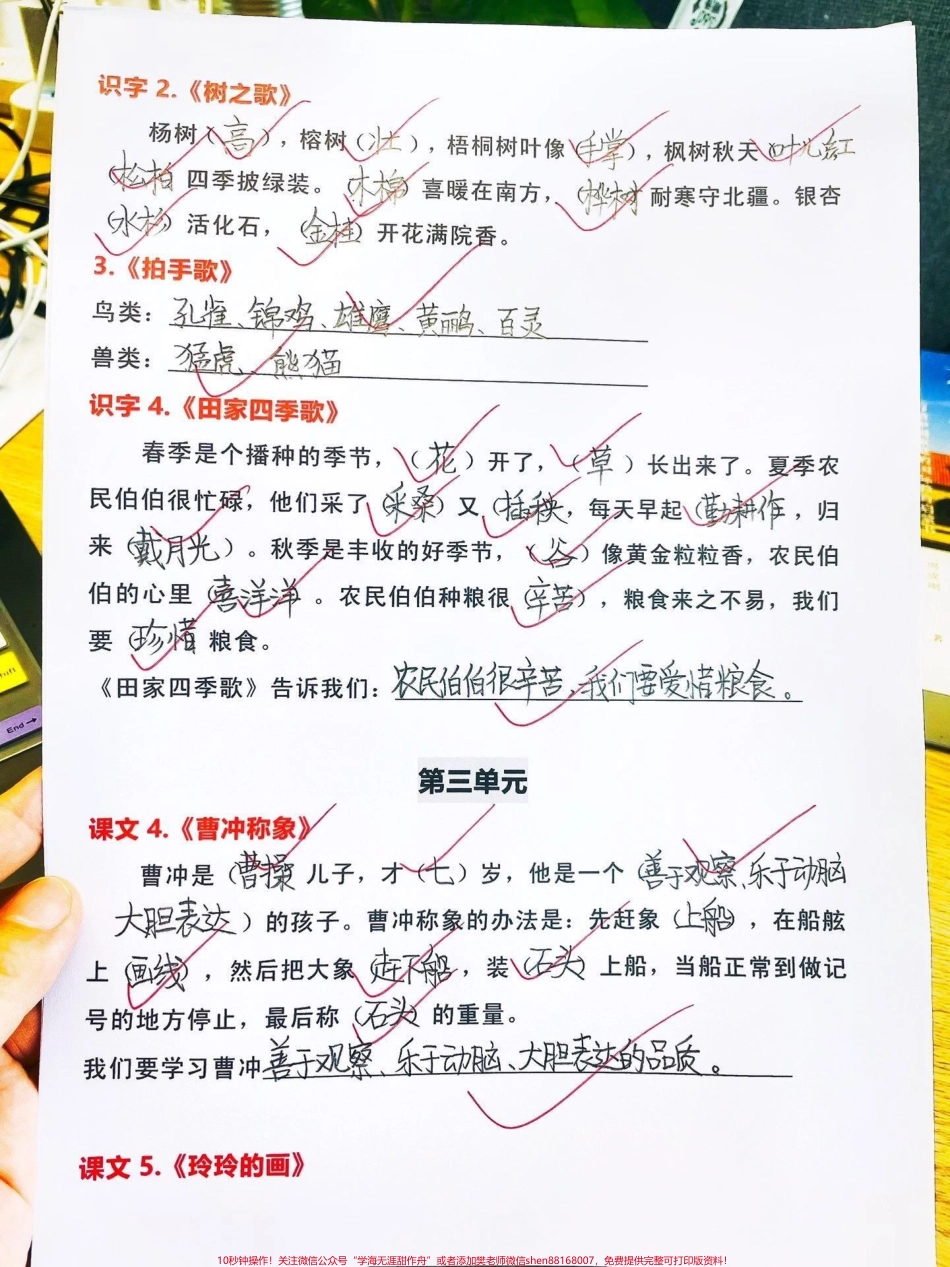 识字 2.《树之歌》
杨树（高），榕树（壮），梧桐树叶像（手掌），枫树秋天（叶儿红
（松柏 四季披绿装。（木棉）喜暖在南方，（桦树 耐寒守北疆。银杏
（水杉）活化石，（金桂）开花满院香。
3.《拍手歌》
鸟类：孔雀、锦鸡、雄鹰、黄鹂、百灵
兽类：猛虎、熊猫
识字 4.《田家四季歌》
春季是个播种的季节，（花）开了，（草）长出来了。夏季农
民伯伯很忙碌，他们采了（采桑）又（插秧，每天早起（勤耕作，归
来（戴月光）。秋季是丰收的好季节，（谷）像黄金粒粒香，农民伯
伯的心里（喜洋洋。农民伯伯种粮很（辛苦），粮食来之不易，我们
要（珍惜 粮食。
《田家四季歌》告诉我们：农民伯伯很辛苦，我们要爱惜粮食。
第三单元
课文 4.《曹冲称象》
曹冲是（曹操 儿子，才（七）岁，他是一个（善于观察、乐于动脑
大胆表达）的孩子。曹冲称象的办法是：先赶象（上船），在船舷
上（画线），然后把大象（赶下船，装（石头）上船，当船正常到做记
号的地方停止，最后称（石头）的重量。
我们要学习曹冲善于观察、乐于动脑、大胆表达的品质。
课文 5.《玲玲的画》
10秒钟操作！关注微信公众号“学海无涯甜作舟”或者添加樊老师微信shen88168007，免费提供完整可打印版资料！
End→